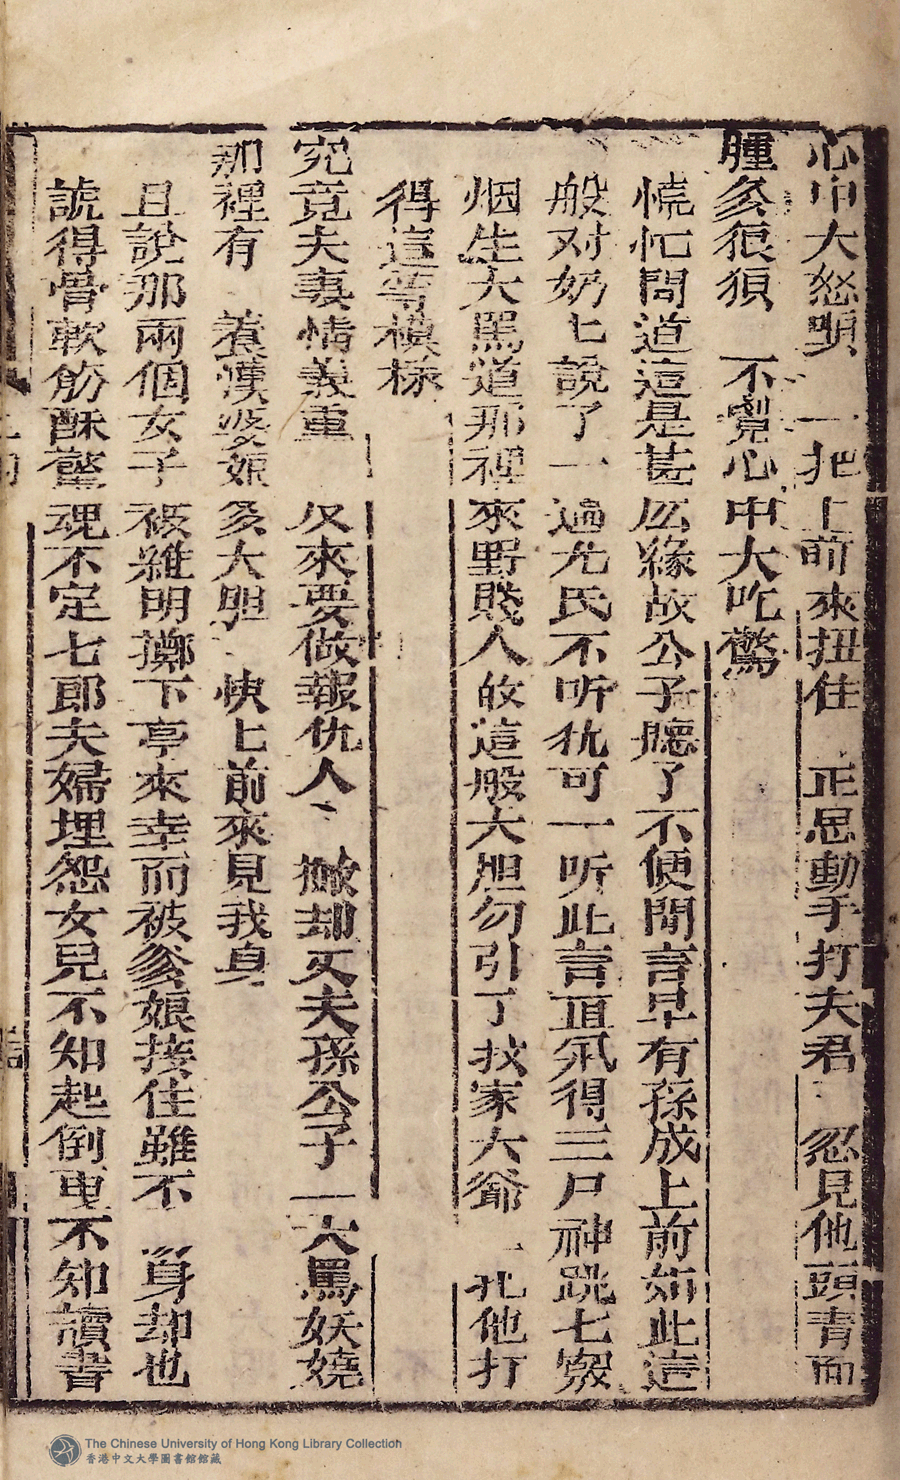 心中大怒 一把上前來扭住 正思動手打夫君 忽見他頭青面
腫多狼狽 不覺心中大吃驚
慌忙問道這是甚么緣故公子聽了不便開言早有孫成上前如此這
般对奶七說了一遍尤氏不听犹可一听此言直氣得三尸神跳七竅
烟生大罵道那裡來野賤人敢這般大胆勾引了我家大爺 一把他打
得這等模樣
究竟夫妻情義重 反來要做報仇人 撇却丈夫孫公子 一大罵妖嬈
那裡有 養漢婆娘多大胆 快上前來見我身
且說那兩個女子被雒明擲下亭來幸而被爹娘接住雖不 身却也
諕得骨軟觔酥驚魂不定七郎夫婦埋怨女兒不知起倒更不知讀書
The Chinese University of Hong Kong Library Collection
香港中文大學圖書館館藏